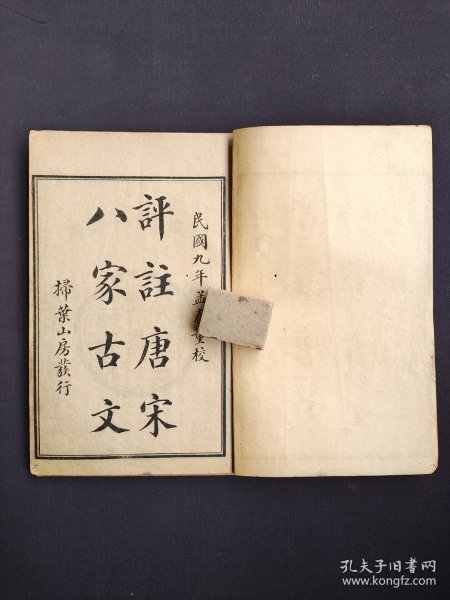 民國九年孟
重校
評註唐宋
八家古文
掃葉山房發行
孔夫子旧书网
www.kongfz.com